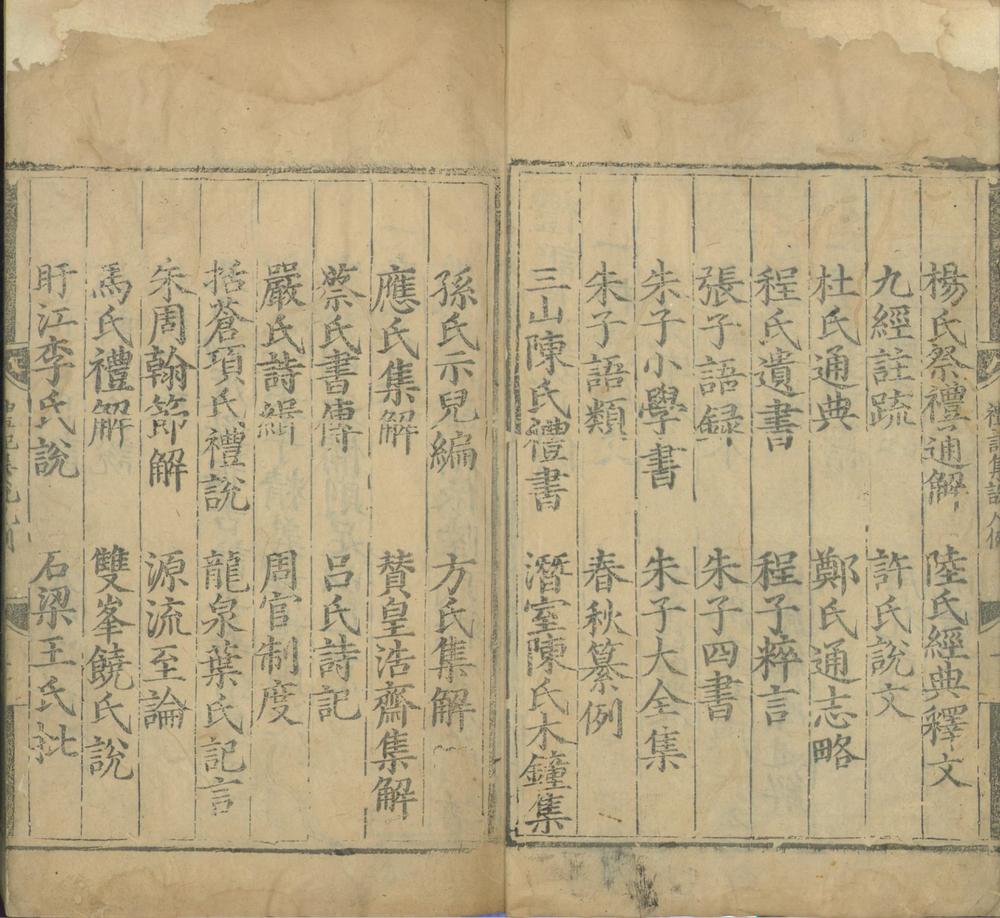 楊氏祭禮通解　陸氏經典釋文
九經註疏　許氏說文
杜氏通典　鄭氏通志略
程氏遺書　程子粹言
張子語録　朱子四書
朱子小學書　朱子大全集
朱子語類　春秋纂例
三山陳氏禮書　潛室陳氏木鐘集
孫氏示兒編　方氏集解
應氏集解　贊皇浩齋集解
蔡氏書傳　呂氏詩記
嚴氏詩緝　周官制度
括蒼項氏禮說　龍泉葉氏記言
朱周翰節解　源流至論
馬氏禮解　雙峯饒氏說
盱江李氏說　石梁王氏批